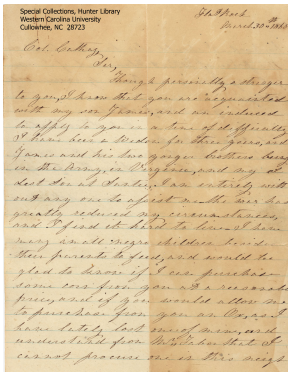 Special Collections, Hunter Library
Western Carolina University
Cullowhee, NC 28723
Flat Rock
March 30th 186
Col. Cathey
Sir,
Though personally a stranger
to you, I know that you are acquainted
with my son James, and am induced
to apply to you in a time of difficulty
I have been a Widow for three years, and
James and his two younger brothers being
in the Army, in Virginia, and my
dest son at I am entirely with
out any one to assist me the war has
greatly reduced my circumstances,
and I find it hard to live I have
many small negro children beside
their parents to feed, and would be
glad to know if I can purchase
some corn from you at a reasonable
price, and if you would allow me
to purchase from you an Ox, as I
have lately lost one of mine, and
understand from that I
cannot procure one in this neigh